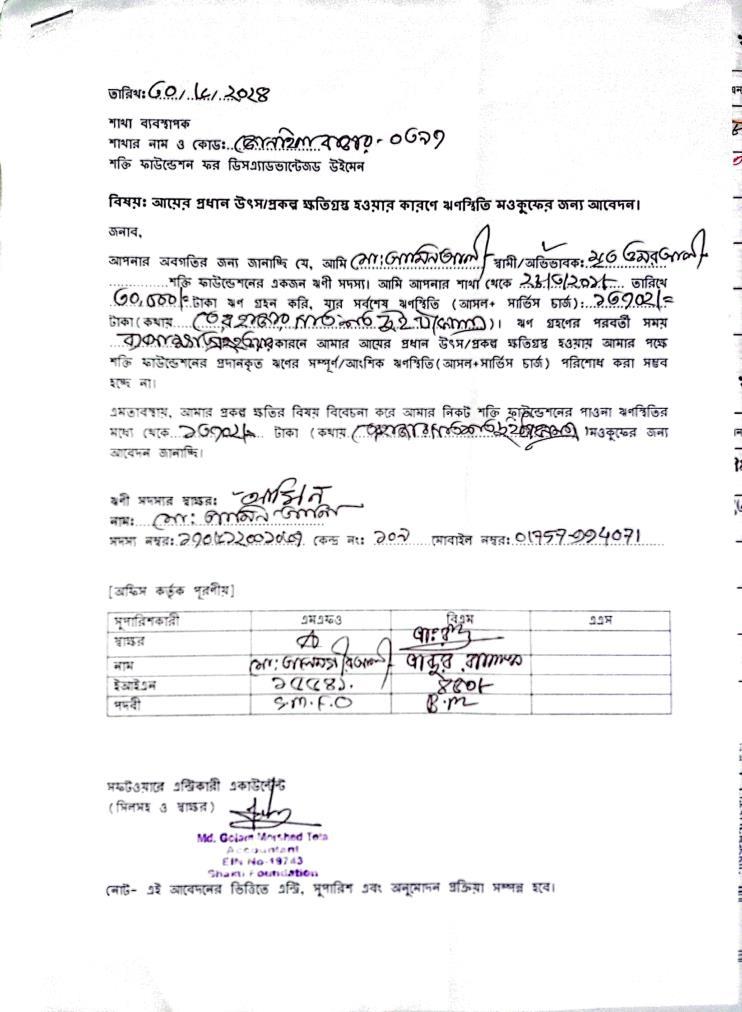 তারিখ: ৩০/৮/২০২৪
শাখা ব্যবস্থাপক
শাখার নাম ও কোড: বাজার- ০৩৯৭
শক্তি ফাউন্ডেশন ফর ডিসএ্যাডভান্টেজড উইমেন
বিষয়: আয়ের প্রধান উৎস/প্রকল্প ক্ষতিগ্রস্ত হওয়ার কারণে ঋণস্থিতি মওকুফের জন্য আবেদন।
জনাব,
আপনার অবগতির জন্য জানাচ্ছি যে, আমি মো: আমিন আলী স্বামী/অভিভাবক: মৃত ওমর আলী
শক্তি ফাউন্ডেশনের একজন ঋণী সদস্য। আমি আপনার শাখা থেকে তারিখে
৩০,০০০/= টাকা ঋণ গ্রহন করি, যার সর্বশেষ ঋণস্থিতি (আসল+ সার্ভিস চার্জ): ১৩৭০২/=
টাকা (কথায় তের হাজার সাত শত দুই টাকা)। ঋণ গ্রহণের পরবর্তী সময়
কারনে আমার আয়ের প্রধান উৎস/প্রকল্প ক্ষতিগ্রস্ত হওয়ায় আমার পক্ষে
শক্তি ফাউন্ডেশনের প্রদানকৃত ঋণের সম্পূর্ণ/আংশিক ঋণস্থিতি (আসল+সার্ভিস চার্জ) পরিশোধ করা সম্ভব
হচ্ছে না।
এমতাবস্থায়, আমার প্রকল্প ক্ষতির বিষয় বিবেচনা করে আমার নিকট শক্তি ফাউন্ডেশনের পাওনা ঋণস্থিতির
মধ্যে থেকে ১৩৭০২/= টাকা (কথায় তের হাজার সাত শত দুই টাকা) মওকুফের জন্য
আবেদন জানাচ্ছি।
ঋণী সদস্যর স্বাক্ষর: আমিন
নাম: মো: আমিন আলী
সদস্য নম্বর: কেন্দ্র নং: ১০৭ মোবাইল নম্বর: 01757-994071
[অফিস কর্তৃক পূরণীয়]
সুপারিশকারী এমএফও বিএম এএম
স্বাক্ষর
নাম মো: আলমগীর আলী
ইআইএন ১৫৫৪১.
পদবী S.M.F.O B.M
সফটওয়ারে এন্ট্রিকারী একাউন্টেন্ট
(সিলসহ ও স্বাক্ষর)
Md. Golam Morshed Tota
Accountant
EIN No-19743
Shakti Foundation
নোট- এই আবেদনের ভিত্তিতে এন্ট্রি, সুপারিশ এবং অনুমোদন প্রক্রিয়া সম্পন্ন হবে।